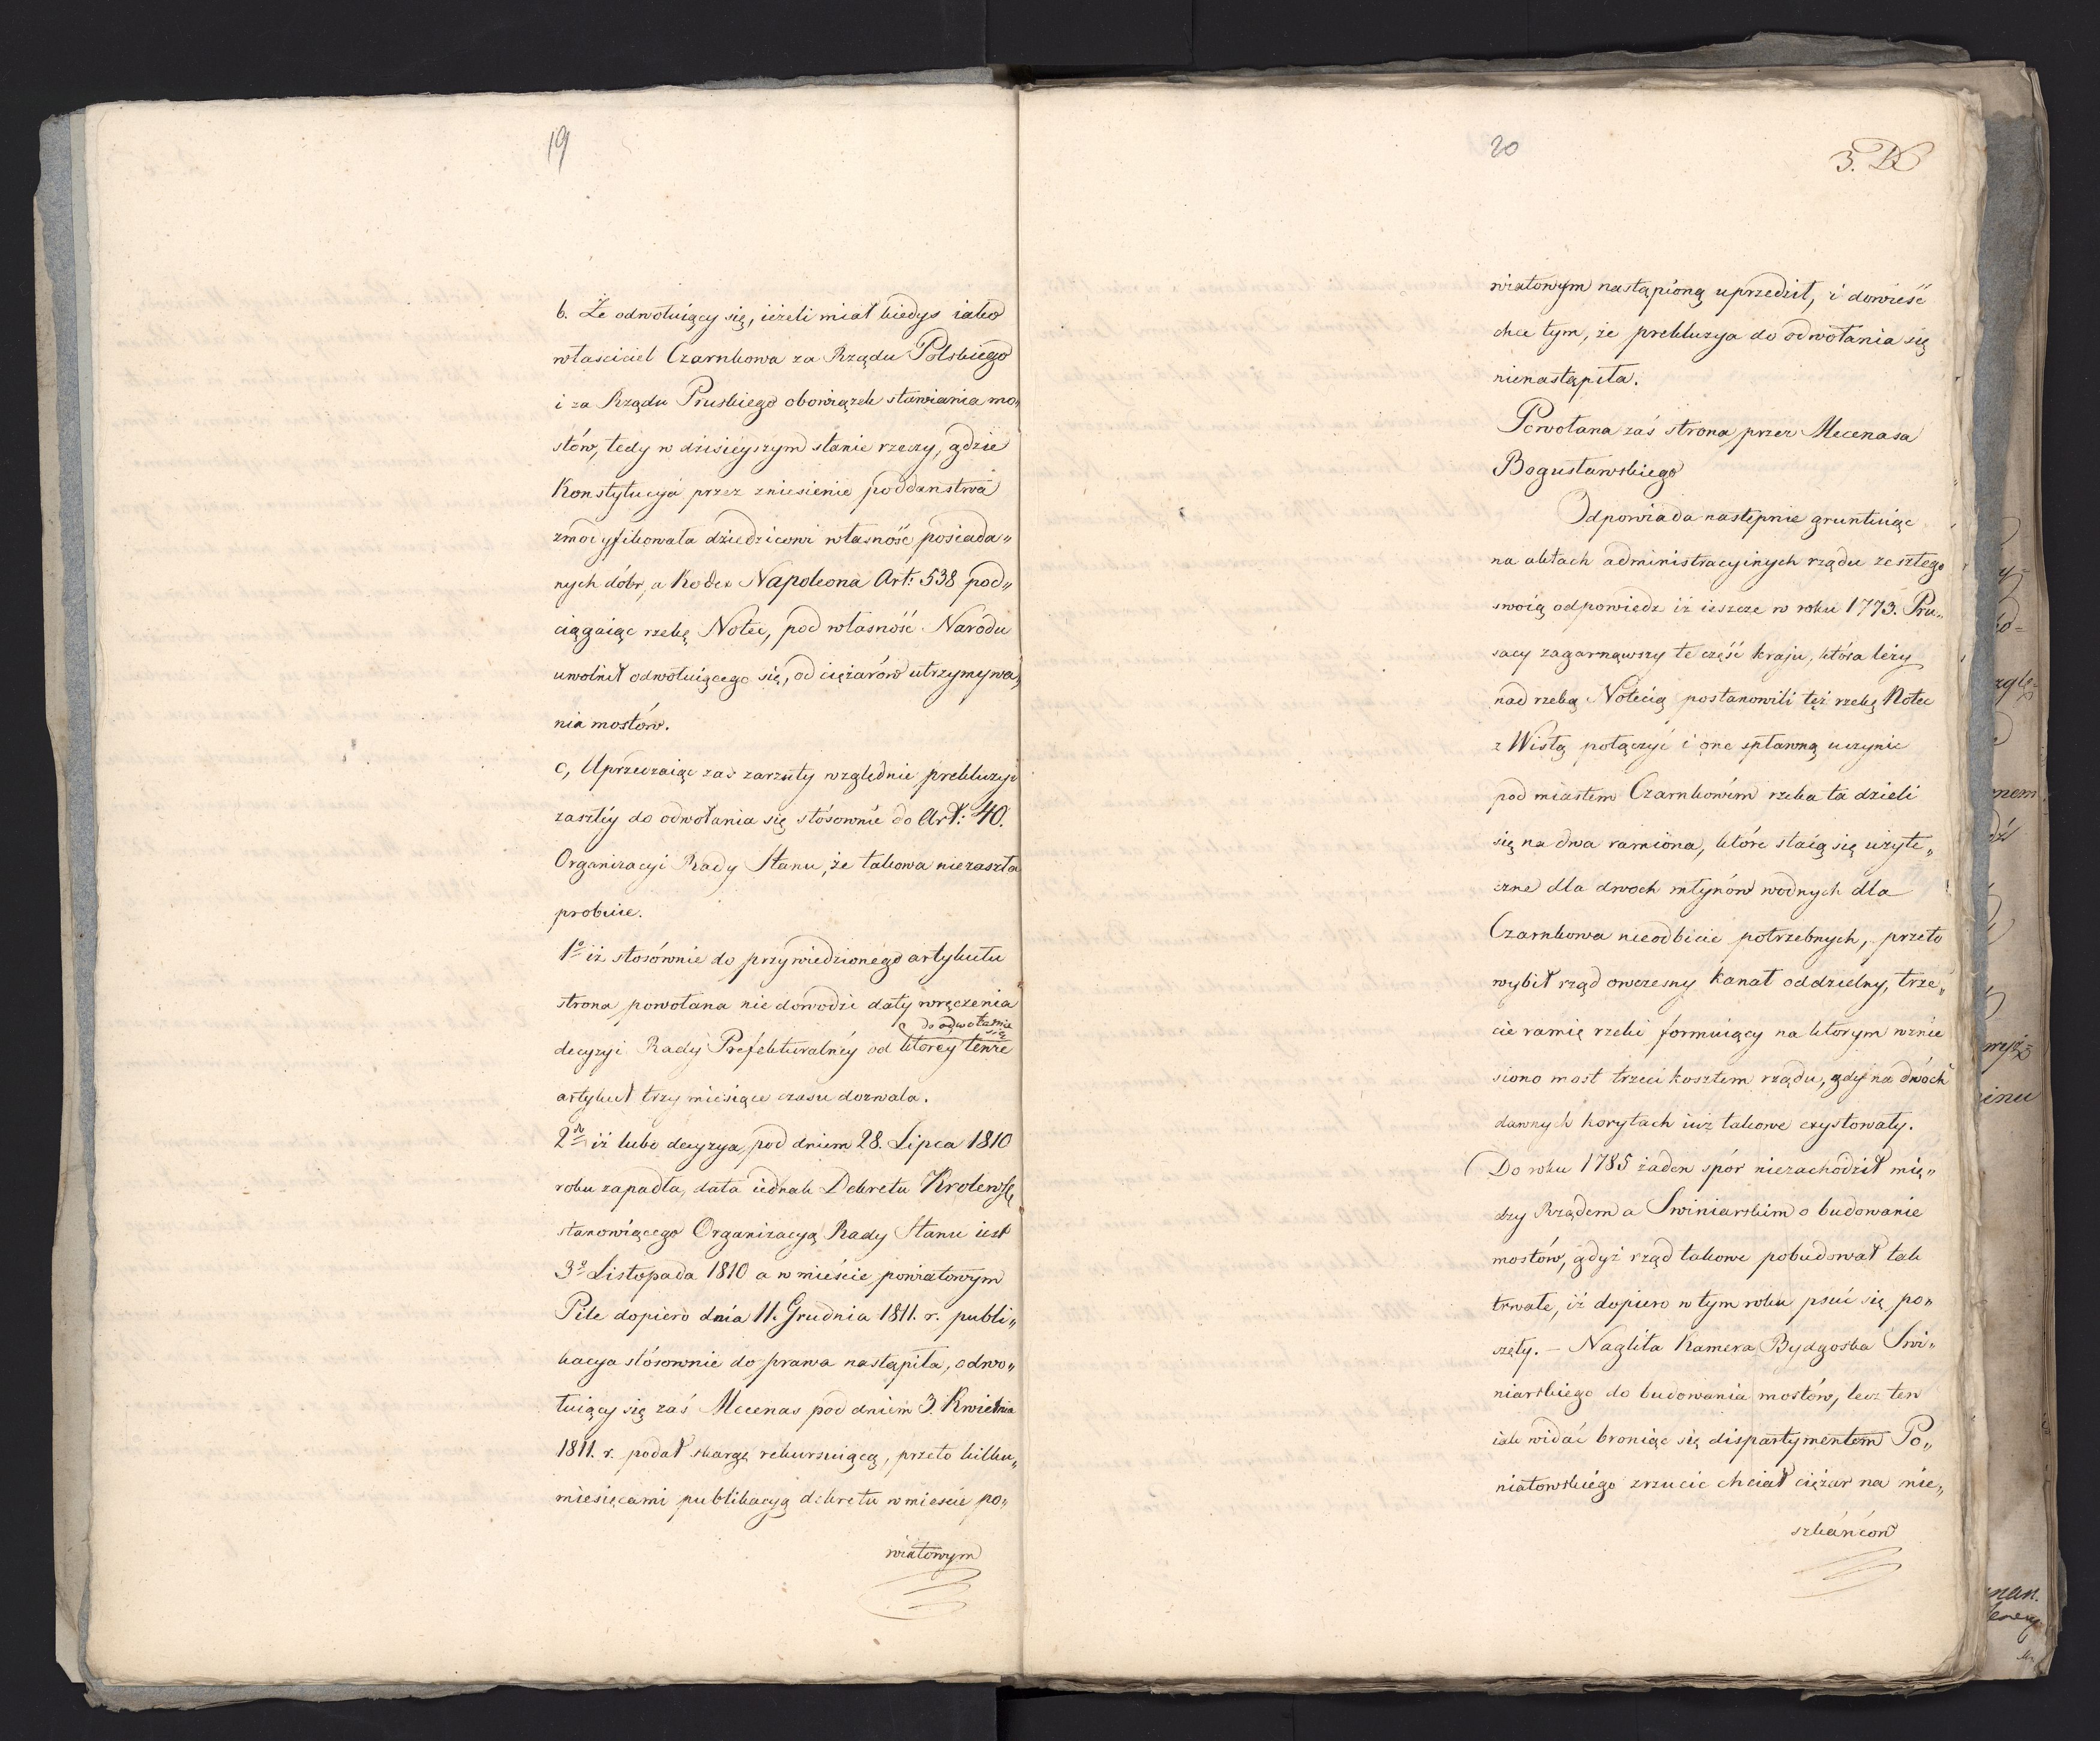 19
b. Że odwołuiący się, ieżeli miał kiedys iako
własciciel Czarnkowa za Rządu Polskiego
i za Rządu Pruskiego obowiązek stawiania mo„
stów, tedy w dzisieyszym stanie rzeczy, gdzie
Konstytucyia przez zniesienie poddanstwa
zmodyfikowała dziedzicowi własność posiada„
nych dóbr, a Kodex Napoleona Art: 538 pod„
ciągaiąc rzekę Noteć, pod własność Narodu
uwolnił odwołuiącego się, od ciężarów utrzymywa„
nia mostów.
c, Uprzeczaiąc zaś zarzuty względnie prekluzyi
zaszłéy do odwołania się stósownie do Art: 40.
Organizacyi Rady Stanu, że takowa niezaszła
probuie.
1º iż stosównie do przywiedzionego artykułu
strona powołana nie dowodzi daty wręczenia
do odwołania
się
decyzyi Rady Prefekturalnéy od ktorey tenże
artykuł trzy miesiące czasu dozwala.
2do iż lubo decyzya pod dniem 28. Lipca 1810
roku zapadła, data iednak Dekretu Krolewsk
stanowiącego Organizacyą Rady Stanu iest
3º Listopada 1810 a w mieście powiatowym
Pile dopiero dnia 11. Grudnia 1811. r. publi„
kacya stósownie do prawa nastąpiła, odwo„
łuiący się zaś Mecenas pod dniem 3. Kwietnia
1811. r. podał skargę rekursuiącą, przeto kilku„
miesięcami publikacyą dekretu w miescie po„
wiatowym
20
3. D
wiatowym nastąpioną uprzedził, i dowieść
chce tym, że prekluzya do odwołania się
nienastąpiła.
Powołana zaś strona przez Mecenasa
Bogusławskiego
Odpowiada następnie gruntuiąc
na aktach administracyinych rządu zeszłego
swoią odpowiedz iż ieszcze w roku 1773. Pru„
sacy zagarnąwszy te część kraju, która leży
nad rzeką Notecią postanowili też rzekę Noteć
z Wisłą połączyć i one spławną uczynic
pod miastem Czarnkowem rzeka ta dzieli
się na dwa ramiona, które staią się użyte„
czne dla dwoch młynów wodnych dla
Czarnkowa nieodbicie potrzebnych, przeto
wybił rząd owczesny kanał oddzielny, trze„
cie ramię rzeki formuiący na ktorym wznie
siono most trzeci kosztem rządu, gdy na dwóch
dawnych korytach iuż takowe exystowały.
Do roku 1785 żaden spór niezachodził mię„
dzy Rządem a Swiniarskim o budowanie
mostów, gdyż rząd takowe pobudował tak
trwałe, iż dopiero w tym roku psuć się po„
częły. – Nagliła Kamera Bydgoska Swi„
niarskiego do budowania mostów, lecz ten
iak widać broniąc się dispartymentem Po„
niatowskiego zrzucic chciał ciężar na mie„
szkańcow